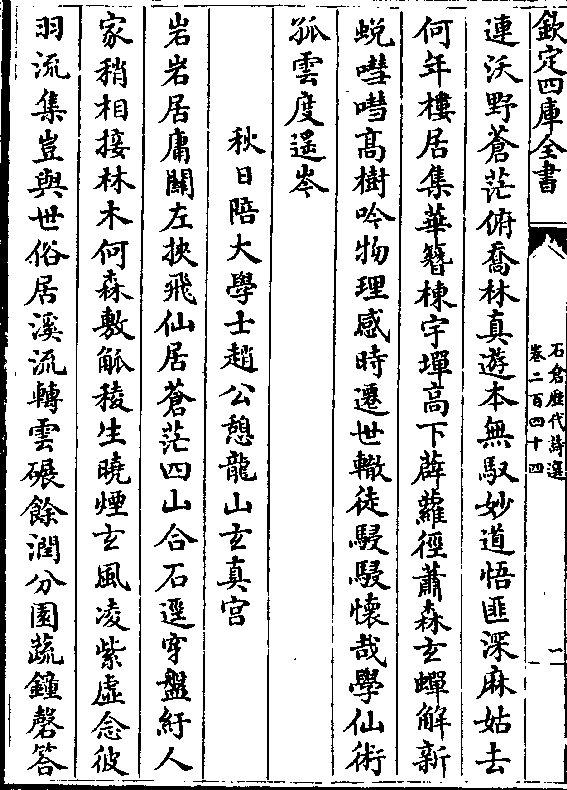 欽定四庫全書
石倉歷代詩選
卷二百四十四
一
連沃野蒼茫俯喬林真遊本無馭妙道悟匪深麻姑去
何年樓居集華簪棟宇墠高下薜蘿徑蕭森玄蟬解新
蛻嘒嘒高樹吟物理感時遷世轍徒駸駸懷哉學仙術
孤雲度遥岑
秋日陪大學士趙公憩龍山玄真宫
岩岩居庸關左挾飛仙居蒼茫四山合石逕穿盤紆人
家稍相接林木何森敷觚稜生曉煙玄風凌紫虚念彼
羽流集豈與世俗居溪流轉雲碾餘潤分園蔬鐘磬答